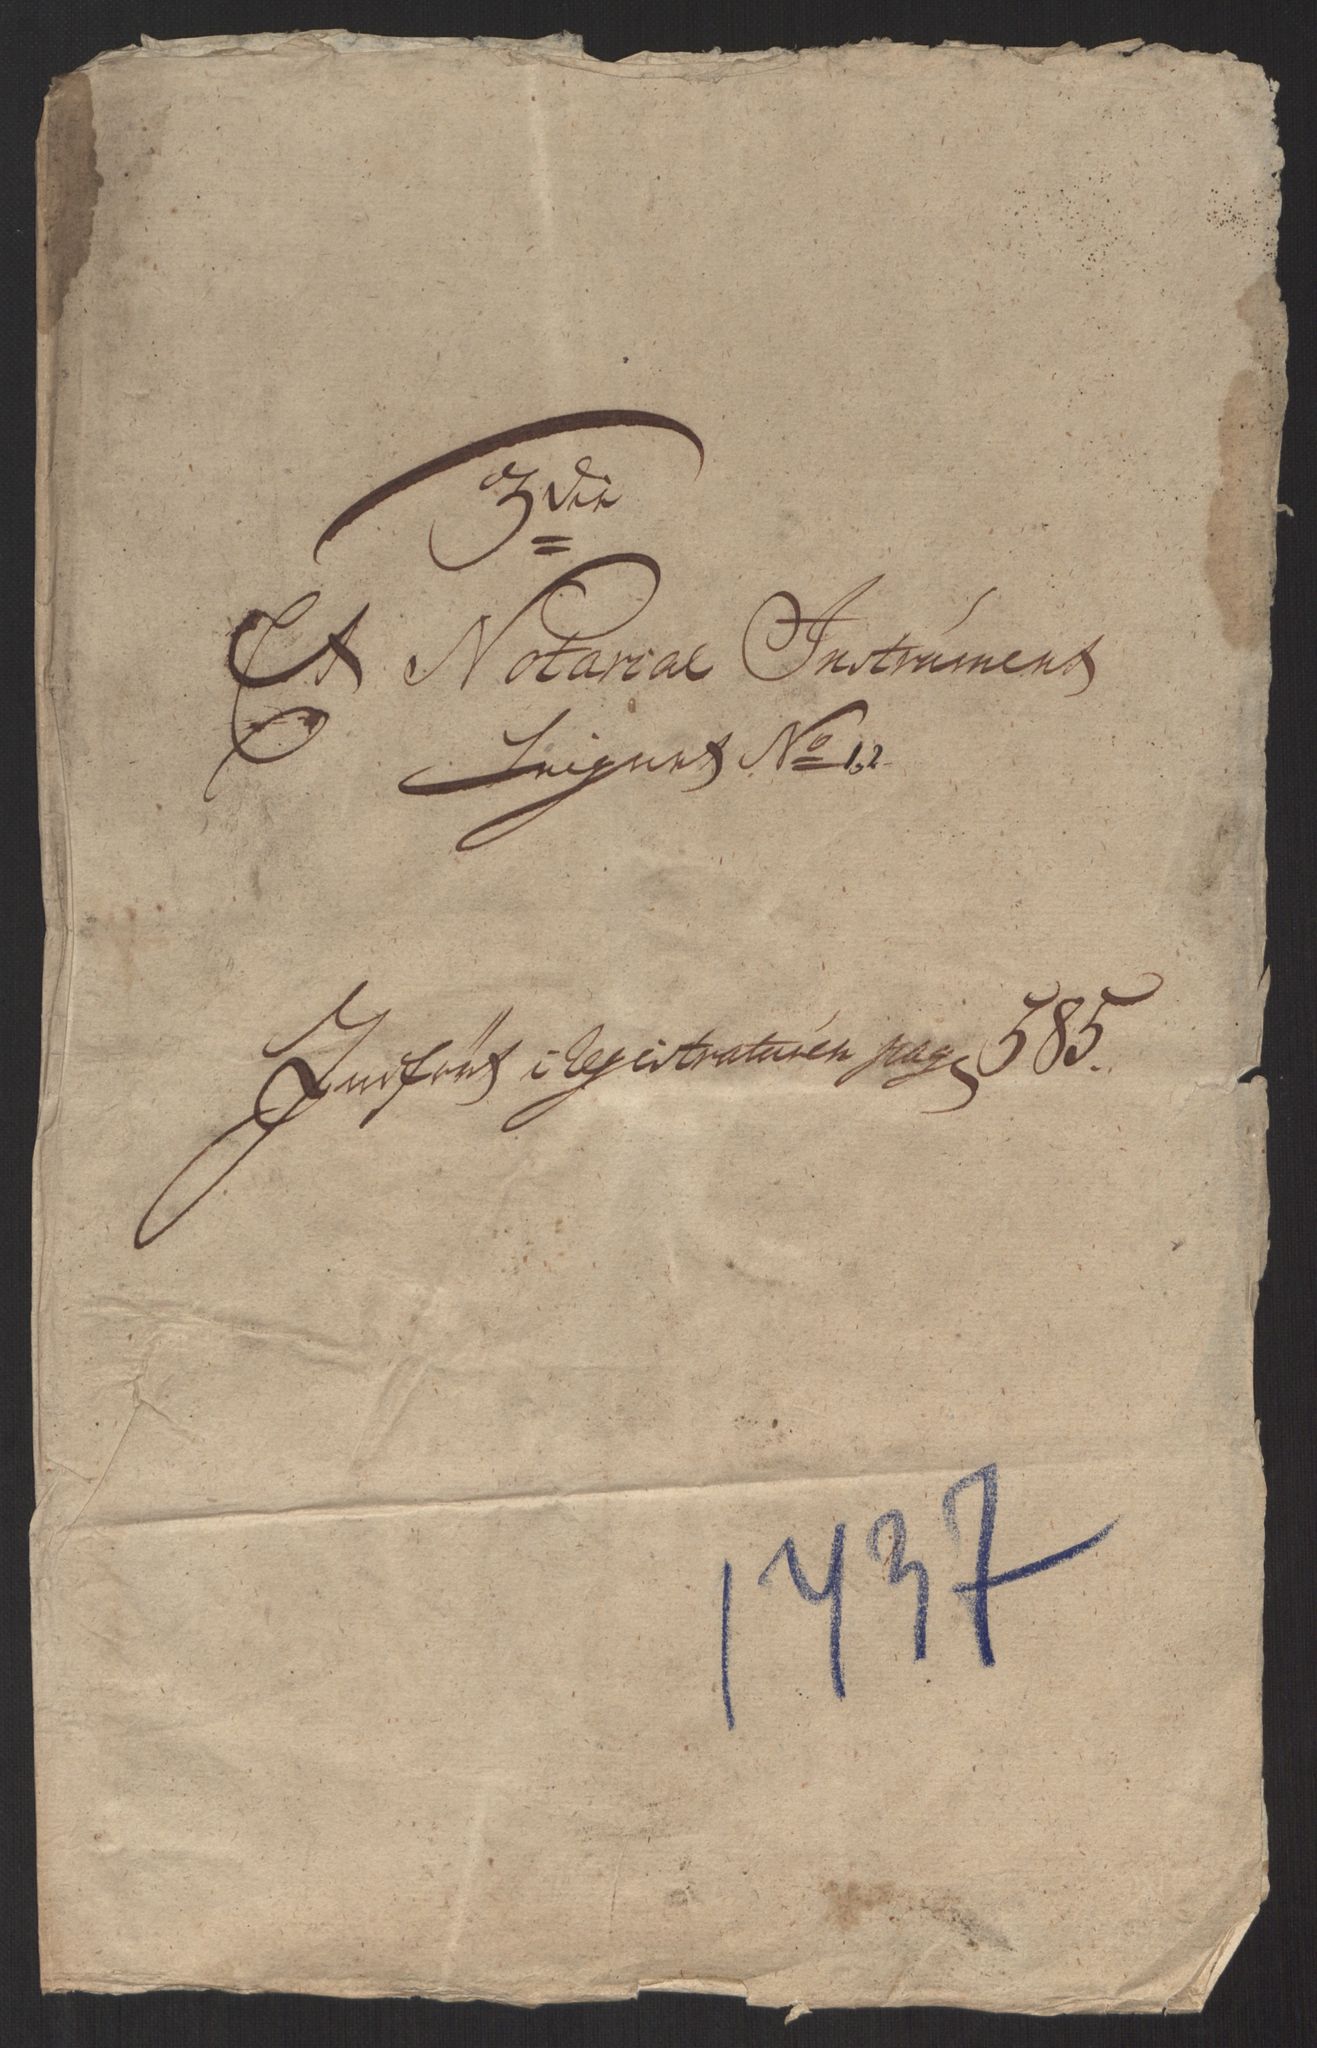 3die
Et Notarial Instrument
Seignert No 12
Indført i Registraturen pag 585.
1737